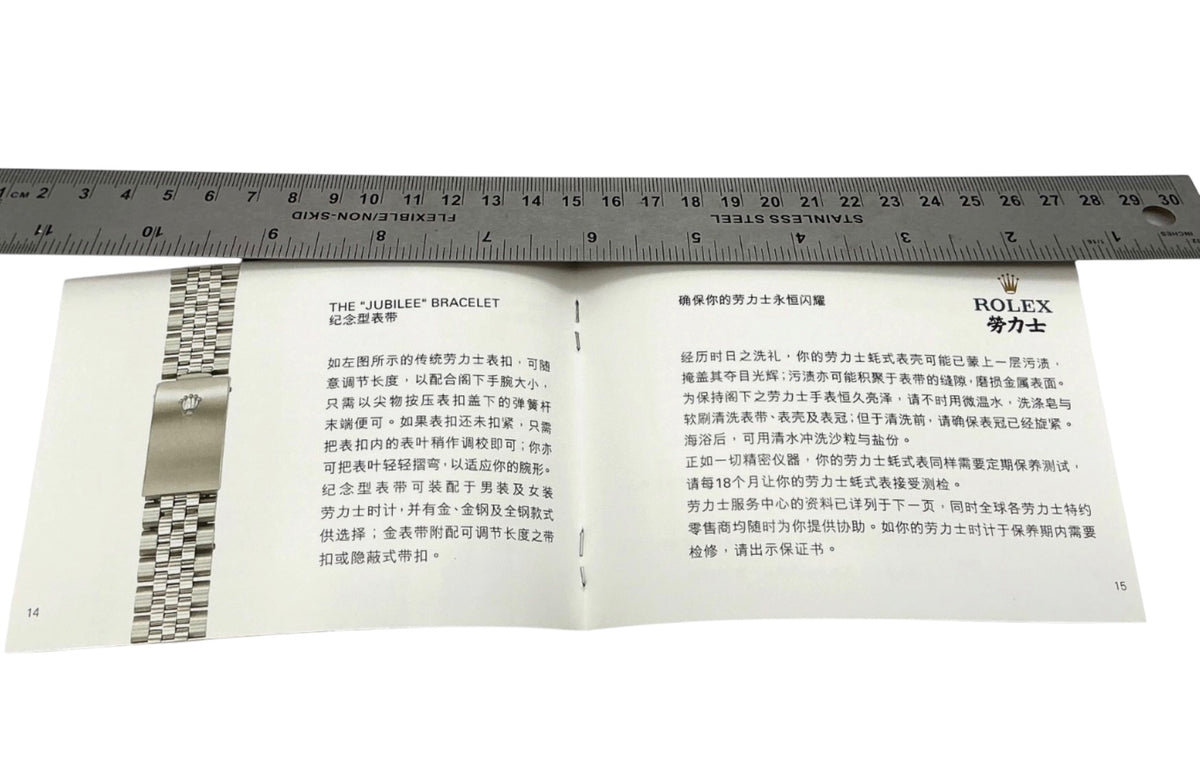 1 CM 2 3 4 5 6 7 8 9 10 11 12 13 14 15 16 17 18 19 20 21 22 23 24 25 26 27 28 29 30
FLEXIBLE/NON-SKID
STAINLESS STEEL
11 10 9 8 7 6 5 4 3 2 1
1/16
1/32
INCHES
THE "JUBILEE" BRACELET
纪念型表带
如左图所示的传统劳力士表扣，可随
意调节长度，以配合阁下手腕大小，
只需以尖物按压表扣盖下的弹簧杆
末端便可。如果表扣还未扣紧，只需
把表扣内的表叶稍作调校即可；你亦
可把表叶轻轻摺弯，以适应你的腕形。
纪念型表带可装配于男装及女装
劳力士时计，并有金、金钢及全钢款式
供选择；金表带附配可调节长度之带
扣或隐蔽式带扣。
14
确保你的劳力士永恒闪耀
ROLEX
勞力士
经历时日之洗礼，你的劳力士蚝式表壳可能已蒙上一层污渍，
掩盖其夺目光辉；污渍亦可能积聚于表带的缝隙，磨损金属表面。
为保持阁下之劳力士手表恒久亮泽，请不时用微温水，洗涤皂与
软刷清洗表带、表壳及表冠；但于清洗前，请确保表冠已经旋紧。
海浴后，可用清水冲洗沙粒与盐份。
正如一切精密仪器，你的劳力士蚝式表同样需要定期保养测试，
请每18个月让你的劳力士蚝式表接受测检。
劳力士服务中心的资料已详列于下一页，同时全球各劳力士特约
零售商均随时为你提供协助。如你的劳力士时计于保养期内需要
检修，请出示保证书。
15